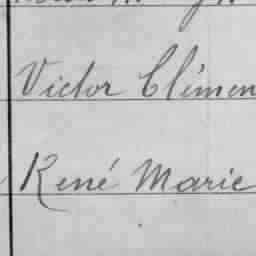 Victor Clémen
René Marie